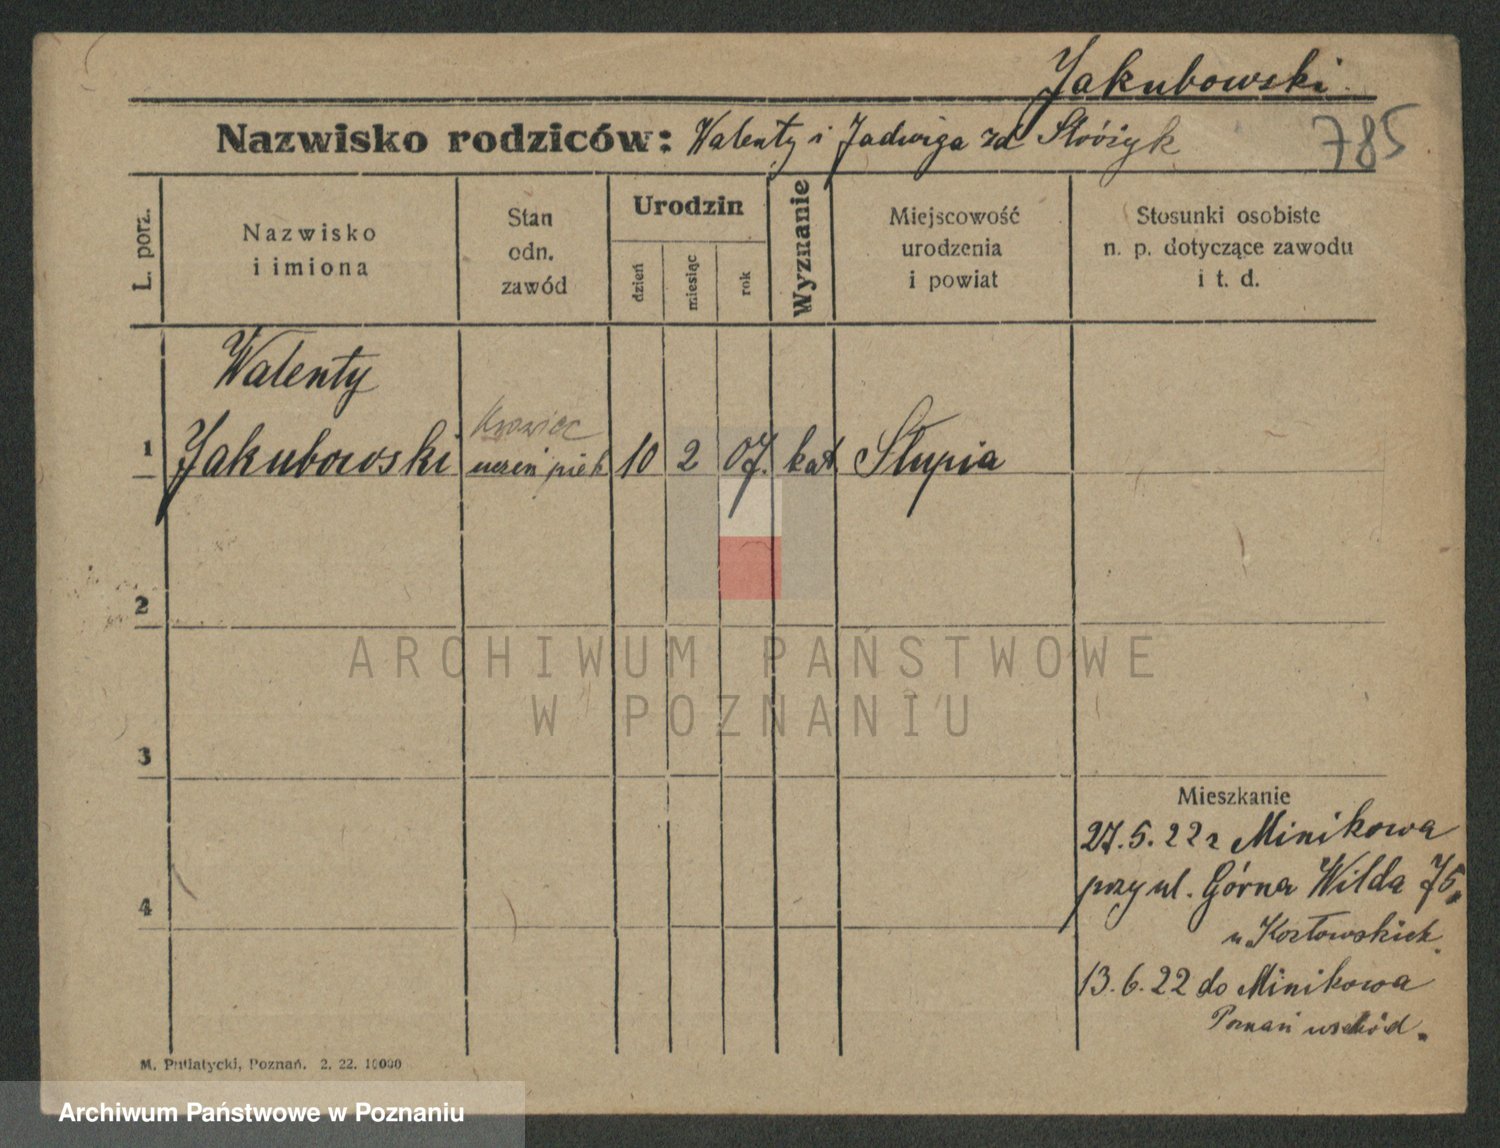 Jakubowski
Nazwisko rodziców: Walenty i Jadwiga zd Stróżyk
785
L. porz.
Nazwisko
i imiona
Stan
odn.
zawód
Urodzin
dzień
miesiąc
rok
Wyznanie
Miejscowość
urodzenia
i powiat
Stosunki osobiste
n. p. dotyczące zawodu
i t. d.
Walenty
krawiec
1 Jakubowski uczeń piek 10 2 07. kat Słupia
2
ARCHIWUM PAŃSTWOWE
W POZNANIU
3
Mieszkanie
27.5.22 z Minikowa
przy ul. Górna Wilda 75.
u Kozłowskich.
4
13.6.22 do Minikowa
Poznań wschód.
M. Putiatycki, Poznań. 2. 22. 10000
Archiwum Państwowe w Poznaniu